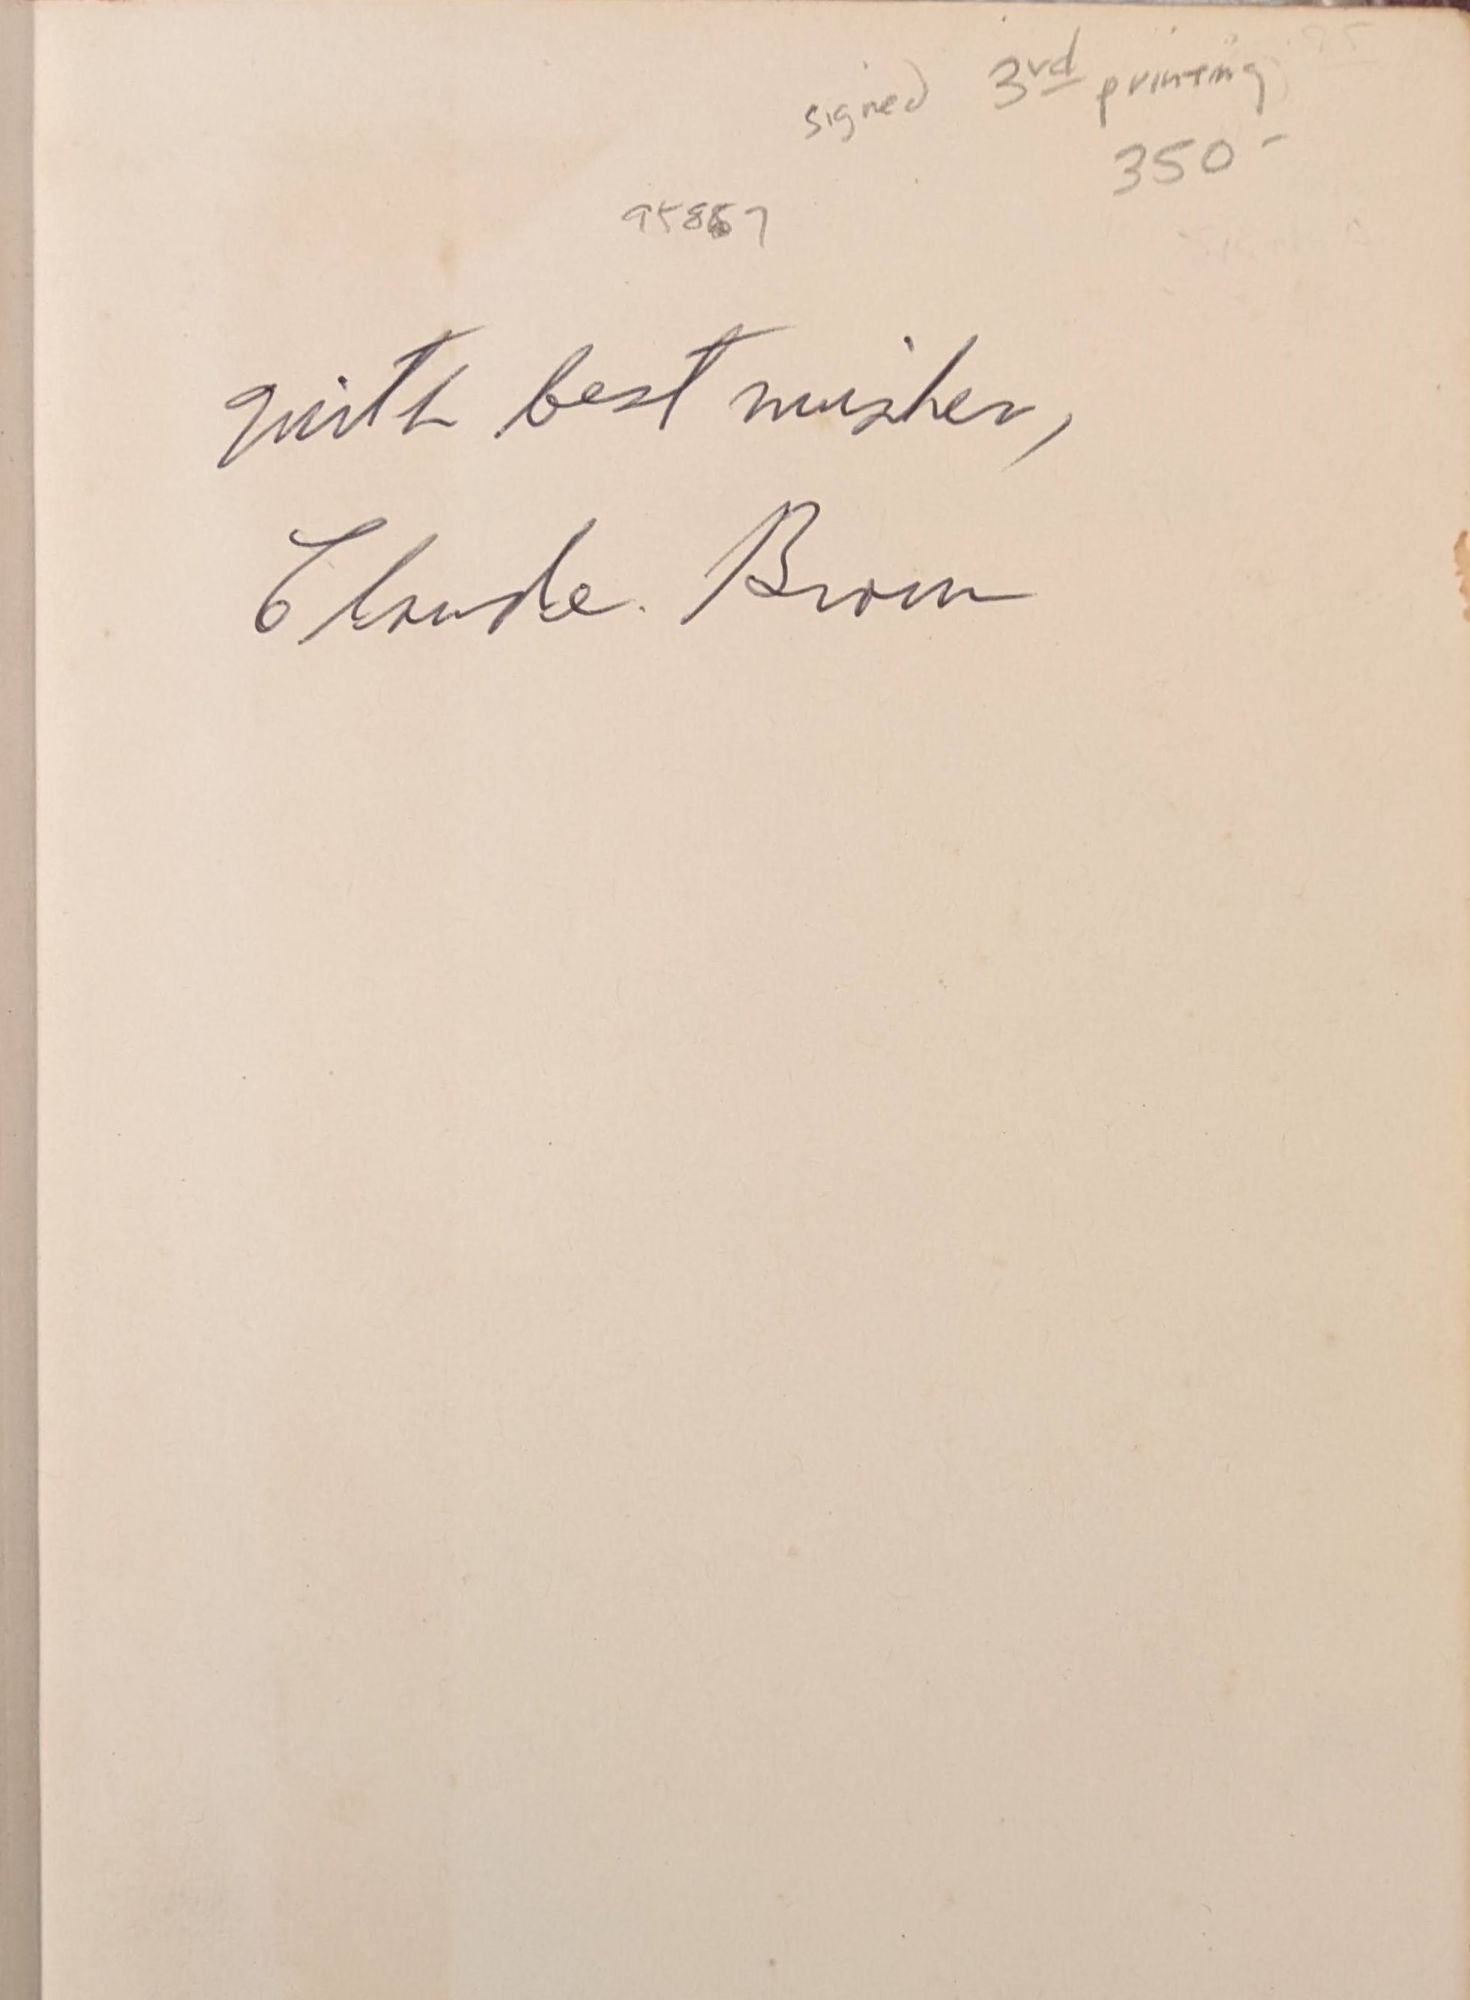 signed 3rd printing
350-
95867
with best wishes,
Claude Brown